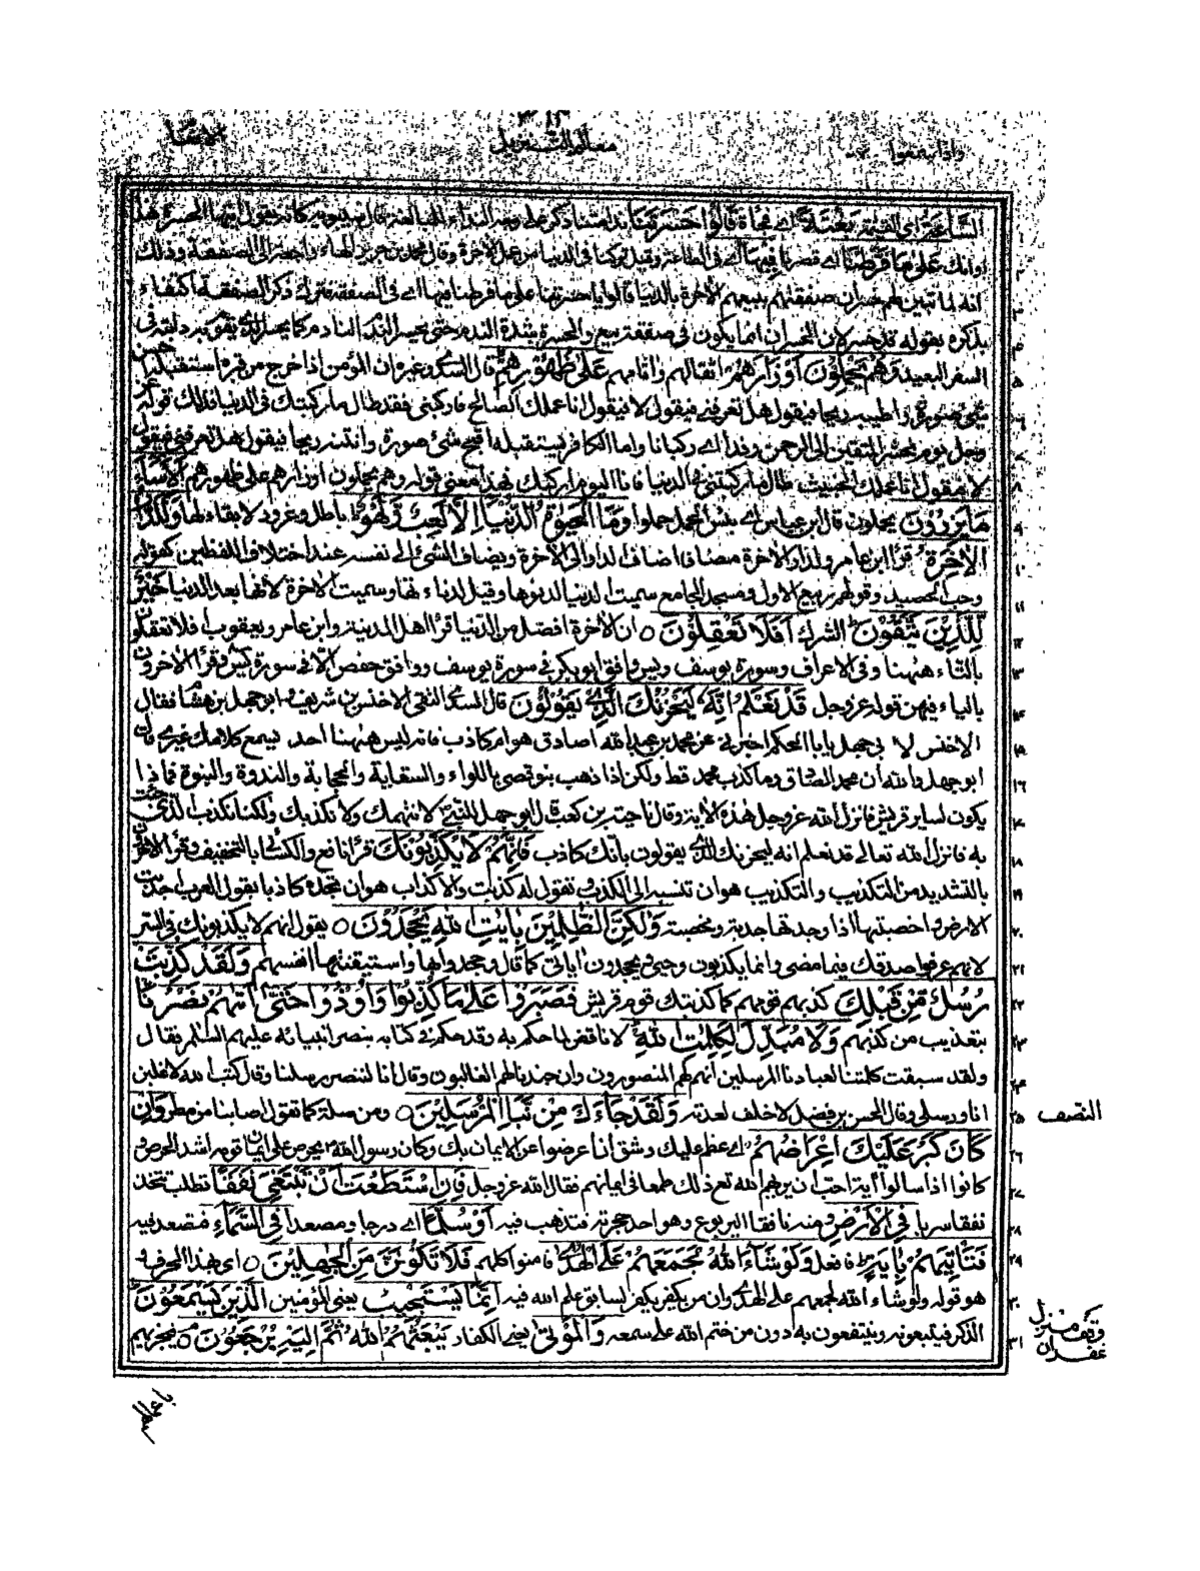 واذا سمعوا
معالم التنزيل
الانعام
السَّاعَةُ اى القيمة بَغْتَةً اے فجأة قَالُوْا يٰحَسْرَتَنَا ندامتنا ذكر على وجه النداء للمبالغة قال سيبويه كانه يقول ايتها الحسرة هذا
اوانك عَلٰى مَا فَرَّطْنَا اے قصرنا فِيْهَا اے فى الطاعة وقيل تركنا فى الدنيا من عمل الآخرة وقال محمد بن جرير الهاء راجعة الى الصفقة وذلك
انه لما تبين لهم خسران صفقتهم ببيعهم الآخرة بالدنيا قالوا يا حسرتنا على ما فرطنا فيها اے فى الصفقة فترك ذكر الصفقة اكتفاء
بذكره بقوله قد خسر لان الخسران انما يكون فى صفقة بيع والحسرة شدة الندم حتى يحسر النادم كما يحسر الذى يقوم به دابته فى
السفر البعيد وَهُمْ يَحْمِلُوْنَ اَوْزَارَهُمْ اثقالهم واٰثامهم عَلٰى ظُهُوْرِهِمْ قال السدى وغيره ان المؤمن اذا خرج من قبره استقبله احسن
شئ صورة واطيبه ريحا فيقول هل تعرفنى فيقول لا فيقول انا عملك الصالح فاركبنى فقد طال ما ركبتك فى الدنيا فذلك قوله عز
وجل يوم نحشر المتقين الى الرحمن وفدا اے ركبانا واما الكافر يستقبله اقبح شئ صورة وانتنه ريحا فيقول هل تعرفنى فيقول
لا فيقول انا عملك الخبيث طال ما ركبتنى فى الدنيا فانا اليوم اركبك فهذا معنى قوله وهم يحملون اوزارهم على ظهورهم اَلَا سَآءَ
مَا يَزِرُوْنَ يحملون قال ابن عباس اے بئس الحمل حملوا وَمَا الْحَيٰوةُ الدُّنْيَآ اِلَّا لَعِبٌ وَّلَهْوٌ باطل وغرور لا بقاء لها وَلَلدَّارُ
الْاٰخِرَةُ قرأ ابن عامر ولدار الآخرة مضافا اضاف الدار الى الآخرة ويضاف الشئ الى نفسه عند اختلاف اللفظين كقوله
وحب الحصيد وقولهم ربيع الاول ومسجد الجامع سميت الدنيا لدنوها وقيل لدناءتها وسميت الآخرة لانها بعد الدنيا خَيْرٌ
لِّلَّذِيْنَ يَتَّقُوْنَ الشرك اَفَلَا تَعْقِلُوْنَ ○ ان الآخرة افضل من الدنيا قرأ اهل المدينة وابن عامر ويعقوب افلا تعقلون
بالتاء ههنا وفى الاعراف وسورة يوسف ويس وافق ابو بكر فى سورة يوسف ووافق حفص الا فى سورة يس وقرأ الآخرون
بالياء فيهن قوله عز وجل قَدْ نَعْلَمُ اِنَّهٗ لَيَحْزُنُكَ الَّذِيْ يَقُوْلُوْنَ قال السدى التقى الاخنس بن شريق وابو جهل بن هشام فقال
الاخنس لا بى جهل يا ابا الحكم اخبرنى عن محمد بن عبد الله اصادق هو ام كاذب فانه ليس ههنا احد يسمع كلامك غيرى قال
ابو جهل والله ان محمدا لصادق وما كذب محمد قط ولكن اذا ذهب بنو قصى باللواء والسقاية والحجابة والندوة والنبوة فماذا
يكون لسائر قريش فانزل الله عز وجل هذه الآية وقال ناجية بن كعب قال ابو جهل للنبى لا نتهمك ولا نكذبك ولكنا نكذب الذى جئت
به فانزل الله تعالى قد نعلم انه ليحزنك الذى يقولون بانك كاذب فَاِنَّهُمْ لَا يُكَذِّبُوْنَكَ قرأ نافع والكسائى بالتخفيف وقرأ الآخرون
بالتشديد من التكذيب والتكذيب هو ان تنسبه الى الكذب وتقول له كذبت والاكذاب هو ان تجده كاذبا يقول العرب اجدبت
الارض واخصبتها اذا وجدتها جدبة ومخصبة وَلٰكِنَّ الظّٰلِمِيْنَ بِاٰيٰتِ اللّٰهِ يَجْحَدُوْنَ ○ يقول انهم لا يكذبونك فى السر
لانهم عرفوا صدقك فيما مضى وانما يكذبون وحيى ويجحدون اٰياتى كما قال وجحدوا بها واستيقنتها انفسهم وَلَقَدْ كُذِّبَتْ
رُسُلٌ مِّنْ قَبْلِكَ كذبهم قومهم كما كذبتك قوم قريش فَصَبَرُوْا عَلٰى مَا كُذِّبُوْا وَاُوْذُوْا حَتّٰىٓ اَتٰىهُمْ نَصْرُنَا
بتعذيب من كذبهم وَلَا مُبَدِّلَ لِكَلِمٰتِ اللّٰهِ لا ناقض لما حكم به وقد حكم فى كتابه بنصر انبيائه عليهم السلم فقال
ولقد سبقت كلمتنا لعبادنا المرسلين انهم لهم المنصورون وان جندنا لهم الغالبون وقال انا لننصر رسلنا وقال كتب الله لاغلبن
انا ورسلى وقال الحسن بن فضيل لا خلف لعدته وَلَقَدْ جَآءَكَ مِنْ نَّبَاِ الْمُرْسَلِيْنَ ○ ومن صلة كما تقول اصابنا من مطر وَاِنْ
كَانَ كَبُرَ عَلَيْكَ اِعْرَاضُهُمْ اے عظم عليك وشق ان اعرضوا عن الايمان بك وكان رسول الله يحرص على ايمان قومه اشد الحرص و
كانوا اذا سالوا اٰية احب ان يريهم الله تع ذلك طمعا فى ايمانهم فقال الله عز وجل فَاِنِ اسْتَطَعْتَ اَنْ تَبْتَغِيَ نَفَقًا تطلب تتخذ
نفقا سربا فِى الْاَرْضِ ومنه نافقا اليربوع وهو احد جحرته فتذهب فيه اَوْ سُلَّمًا اے درجا ومصعدا فِى السَّمَآءِ فتصعد فيه
فَتَاْتِيَهُمْ بِاٰيَةٍ فافعل وَلَوْ شَآءَ اللّٰهُ لَجَمَعَهُمْ عَلَى الْهُدٰى فامنوا كلهم فَلَا تَكُوْنَنَّ مِنَ الْجٰهِلِيْنَ ○ اى بهذا الحرف و
هو قوله ولو شاء الله لجمعهم على الهدى وان من يكفر يكفر لسابق علم الله فيه اِنَّمَا يَسْتَجِيْبُ يعنى المؤمنين الَّذِيْنَ يَسْمَعُوْنَ
الذكر فيتبعونه وينتفعون به دون من ختم الله على سمعه وَالْمَوْتٰى يعنى الكفار يَبْعَثُهُمُ اللّٰهُ ثُمَّ اِلَيْهِ يُرْجَعُوْنَ ○ فيجزيهم
النصف
وقف منزل
غفران